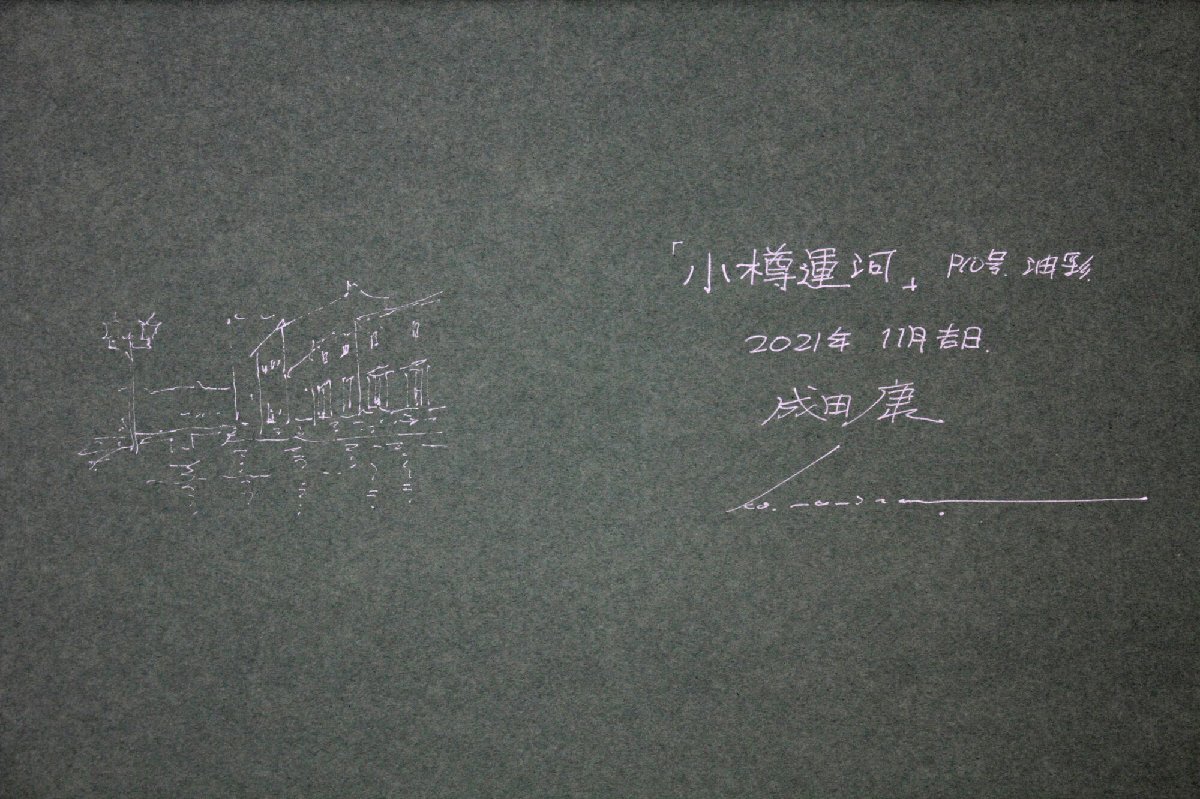 「小樽運河」 P10号. 油彩.
2021年 11月吉日.
成田 康